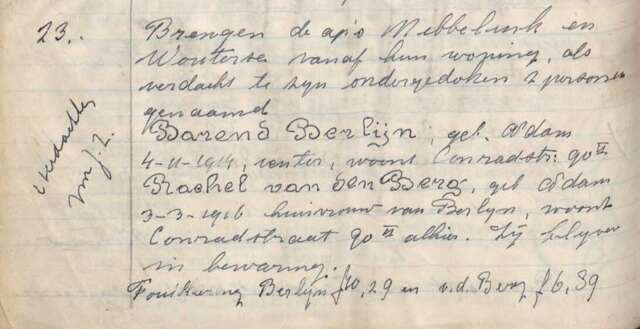 23.. Brengen de apo Mebbelink en
Wouterse vanaf hun woning, als
verdacht te zijn ondergedoken 2 personen
genaamd
Barend Berlijn, geb. A'dam
4-11-1914, venter, woont Conradstr: 90 II
Rachel van den Berg, geb A'dam
3-3-1916 huisvrouw van Berlyn, woont
Conradstraat 90 II alhier. Zij blyven
in bewaring.
Berlijn f 10,29 en v.d. Berg f 6,39